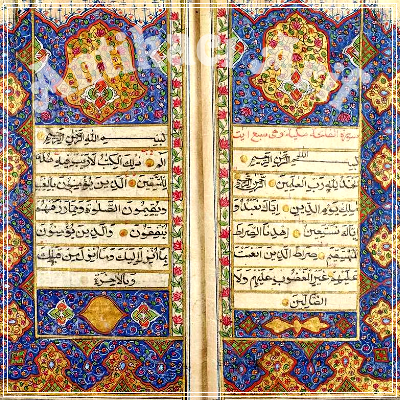 سورة الفاتحة مكية وهي سبع ايات
بسم الله الرحمن الرحيم
الحمد لله رب العلمين الرحمن الرحيم
ملك يوم الدين اياك نعبد و
اياك نستعين اهدنا الصراط
المستقيم صراط الذين انعمت
عليهم غير المغضوب عليهم ولا
الضالين
بسم الله الرحمن الرحيم
الم ذلك الكتب لا ريب فيه هدى
للمتقين الذين يؤمنون بالغيب
ويقيمون الصلوة ومما رزقنهم
ينفقون والذين يؤمنون
بما انزل اليك وما انزل من قبلك
وبالاخرة